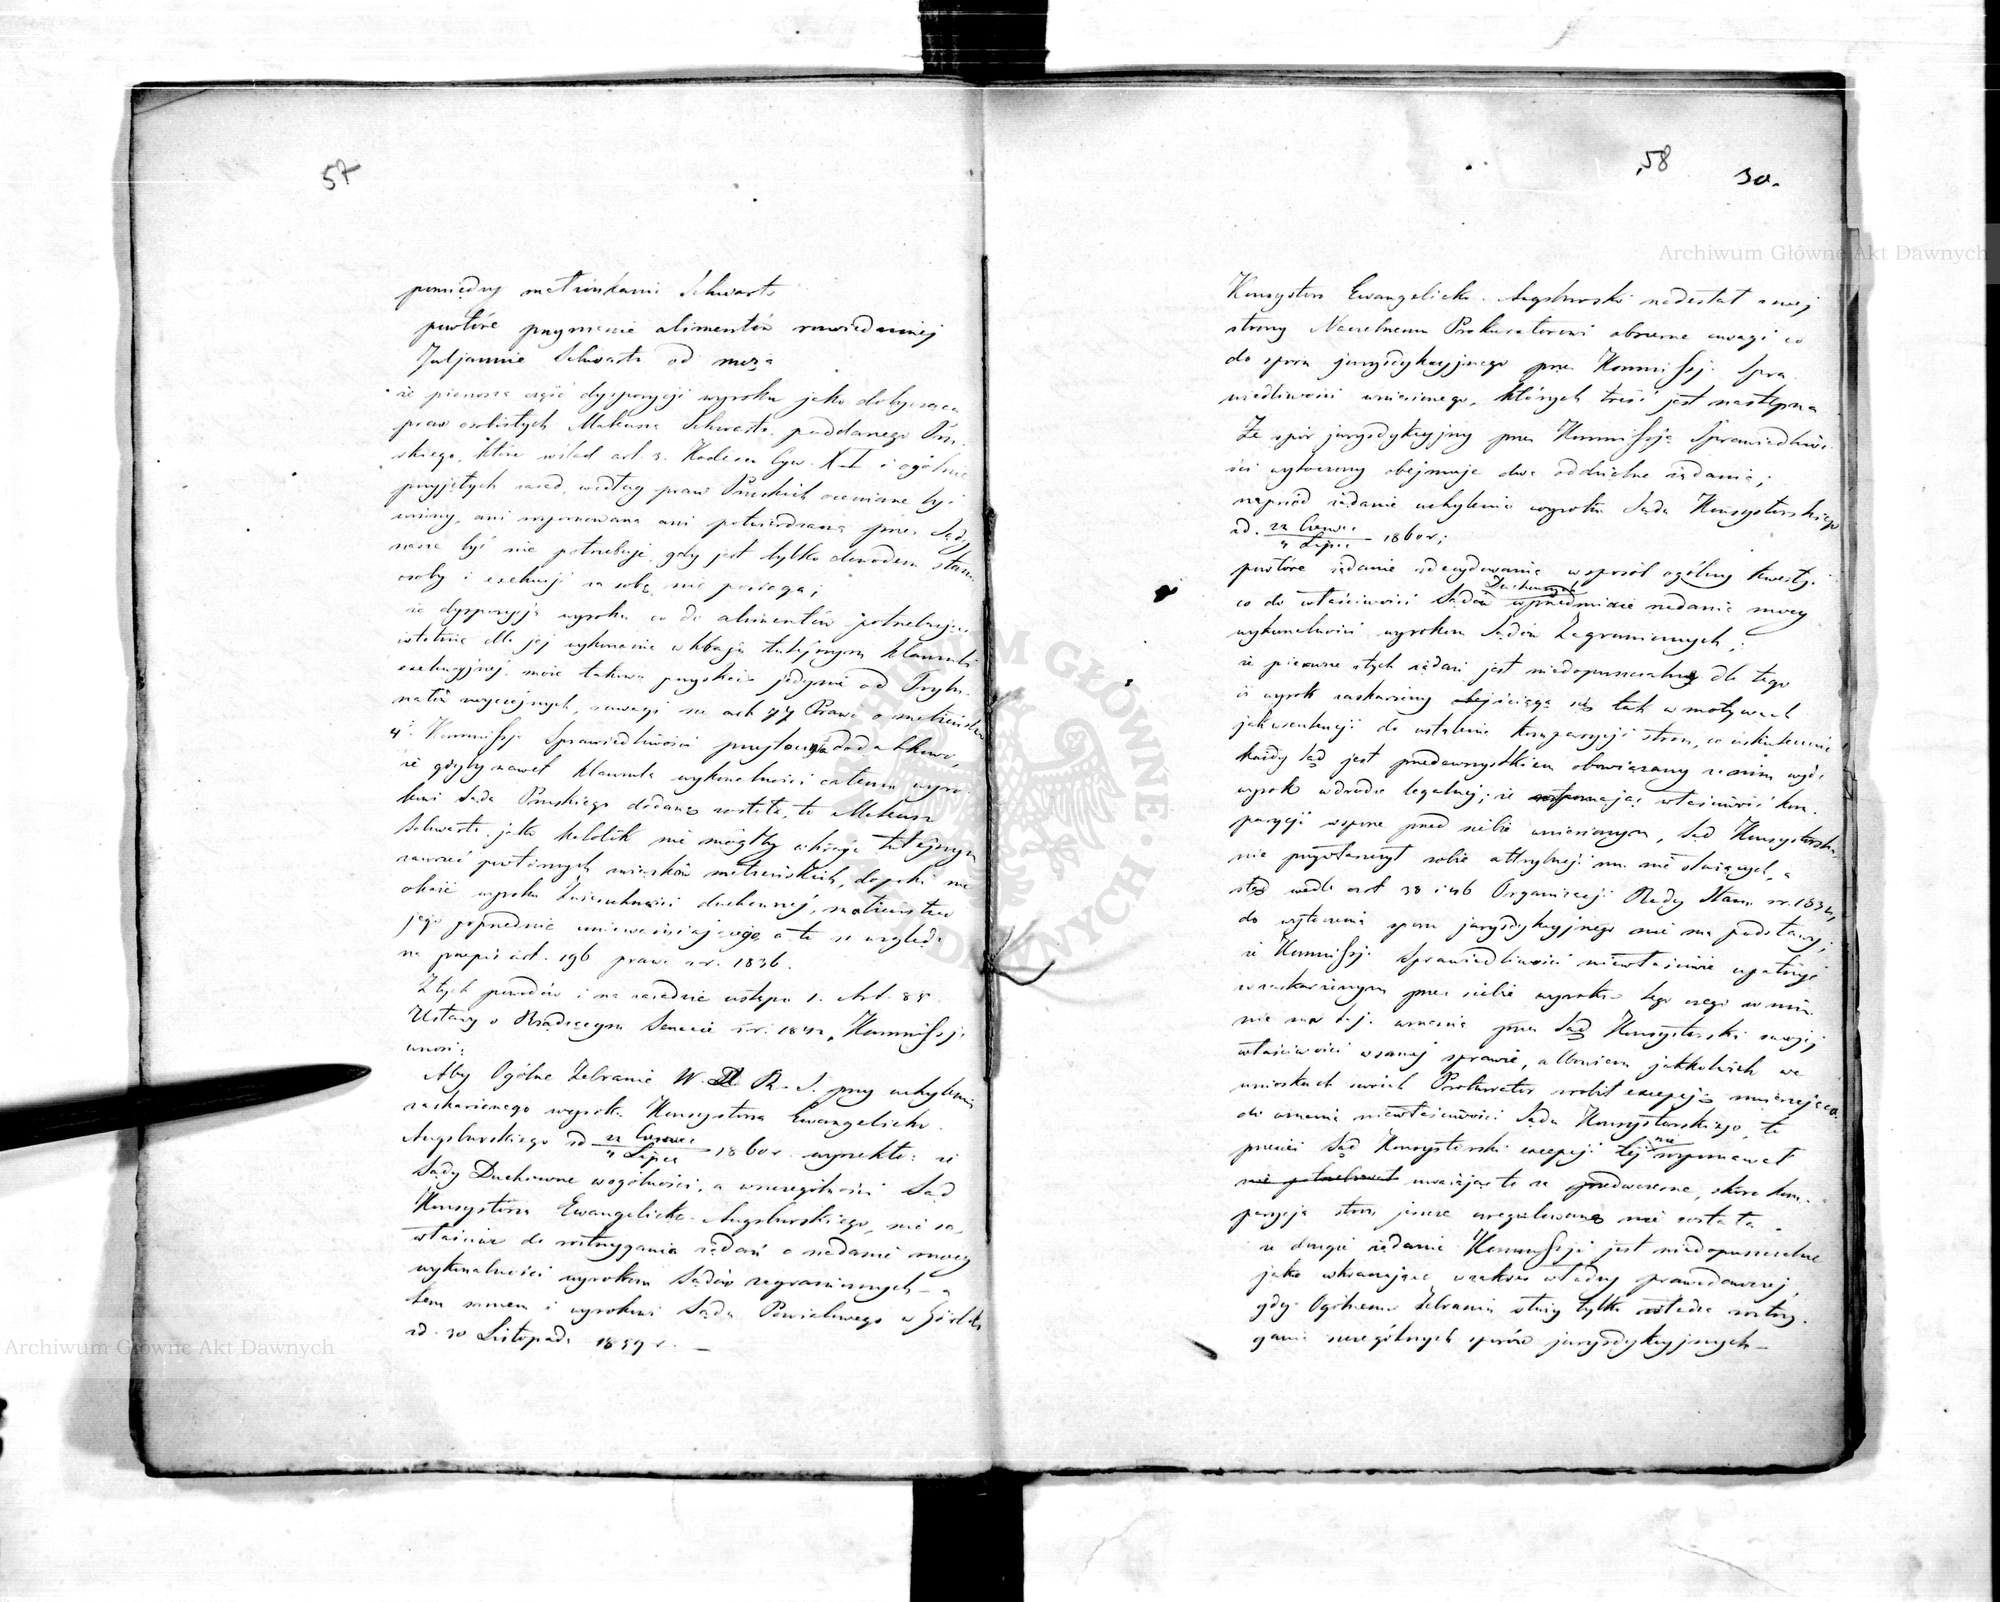 57
pomiędzy małżonkami Schwartz
powtóre przyznanie alimentów rozwiedzionej
Juljannie Schwartz od męża
że pierwsza część dyspozycji wyroku jako dotycząca
praw osobistych Mateusza Schwartz poddanego Pru-
skiego, które wślad art. 3. Kodexu Cyw. K. P. i ogólnie
przyjętych zasad, według praw Pruskich ocenione być
winny, ani wzmacniana ani potwierdzana przez Sądy
nasze być nie potrzebuje, gdy jest tylko dowodem stanu
osoby i exekucji za sobą nie pociąga;
że dyspozycja wyroku co do alimentów potrzebuje
istotnie dla jej wykonania w kraju tutejszym klauzuli
exekucyjnej, może takową pozyskać jedynie od Trybu-
nałów zwyczajnych, z uwagi na art 77 Prawa o małżeństwie
4° Kommissja Sprawiedliwości przytacza dodatkowo,
że gdyby nawet klauzula wykonalności całemu wyro-
kowi Sądu Pruskiego dodaną została, to Mateusz
Schwartz jako katolik nie mógłby w kraju tutejszym
zawrzeć powtórnych związków małżeńskich, dopóki nie
okaże wyroku Zwierzchności duchownej, małżeństwo
jego poprzednie unieważniającego a to ze względu
na przepis art. 196 prawa z r. 1836.
Z tych powodów i na zasadzie ustępu 1. Art. 88.
Ustawy o Rządzącym Senacie z r. 1842, Kommissja
wnosi:
Aby Ogólne Zebranie W. D. R. S. przy uchyleniu
zaskarżonego wyroku Konsystorza Ewangelicko-
Augsburskiego z d. 22 Czerwca / 4 Lipca 1860 r. wyrzekło: że
Sądy Duchowne w ogólności, a w szczególności Sąd
Konsystorza Ewangelicko-Augsburskiego, nie są
właściwe do roztrzygania żądań o nadanie mocy
wykonalności wyrokom Sądów zagranicznych – a
tem samem i wyrokowi Sądu Powiatowego w Görlitz
z d. 30 Listopada 1859 r. –
58
30.
Konsystorz Ewangelicko-Augsburski nadesłał z swej
strony Naczelnemu Prokuratorowi obszerne uwagi co
do sporu jurysdykcyjnego przez Kommissję Spra-
wiedliwości wniesionego, których treść jest następna
Że spór jurysdykcyjny przez Kommissją Sprawiedliwo-
ści wytoczony obejmuje dwa oddzielne żądania;
naprzód żądanie uchylenia wyroku Sądu Konsystorskiego
z d. 22 Czerwca / 4 Lipca 1860 r;
powtóre żądanie zdecydowania w sposób ogólny kwestji
co do właściwości Sądów Duchownych w przedmiocie nadania mocy
wykonalności wyrokom Sądów Zagranicznych;
że pierwsze z tych żądań jest niedopuszczalne dla tego
iż wyrok zaskarżony ściąga się tak w motywach
jak sentencji do ustalenia komparycji stron, co uskutecznić
każdy Sąd jest przedewszystkiem obowiązany zanim wyda
wyrok w drodze legalnej; że właściwość kom-
parycji w sporze przed siebie wniesionym, Sąd Konsystorski
nie przywłaszczył sobie attrybucji mu nie służących, a
stąd wedle art 38 i 46 Organizacji Rady Stanu z r. 1832,
do wytoczenia sporu jurysdykcyjnego nie ma podstawy;
że Kommissja Sprawiedliwości niewłaściwie upatruje
w zaskarżonym przez siebie wyroku tego czego w nim
nie ma t. j. uznania przez Sąd Konsystorski swojej
właściwości w samej sprawie, albowiem jakkolwiek we
wnioskach swoich Prokurator zrobił excepcją zmierzającą
do uznania niewłaściwości Sądu Konsystorskiego, to
przecież Sąd Konsystorski excepcji tej nie rozpoznawał
nie potrzebował uważając to za przedwczesne, skoro kom-
parycja stron jeszcze uregulowaną nie została.
że drugie żądanie Kommissji jest niedopuszczalne
jako wkraczające w zakres władzy prawodawczej,
gdy Ogólnemu Zebraniu służy tylko władza roztrzy-
gania szczególnych sporów jurysdykcyjnych –
Archiwum Główne Akt Dawnych
Archiwum Główne Akt Dawnych
ARCHIWUM GŁÓWNE AKT DAWNYCH